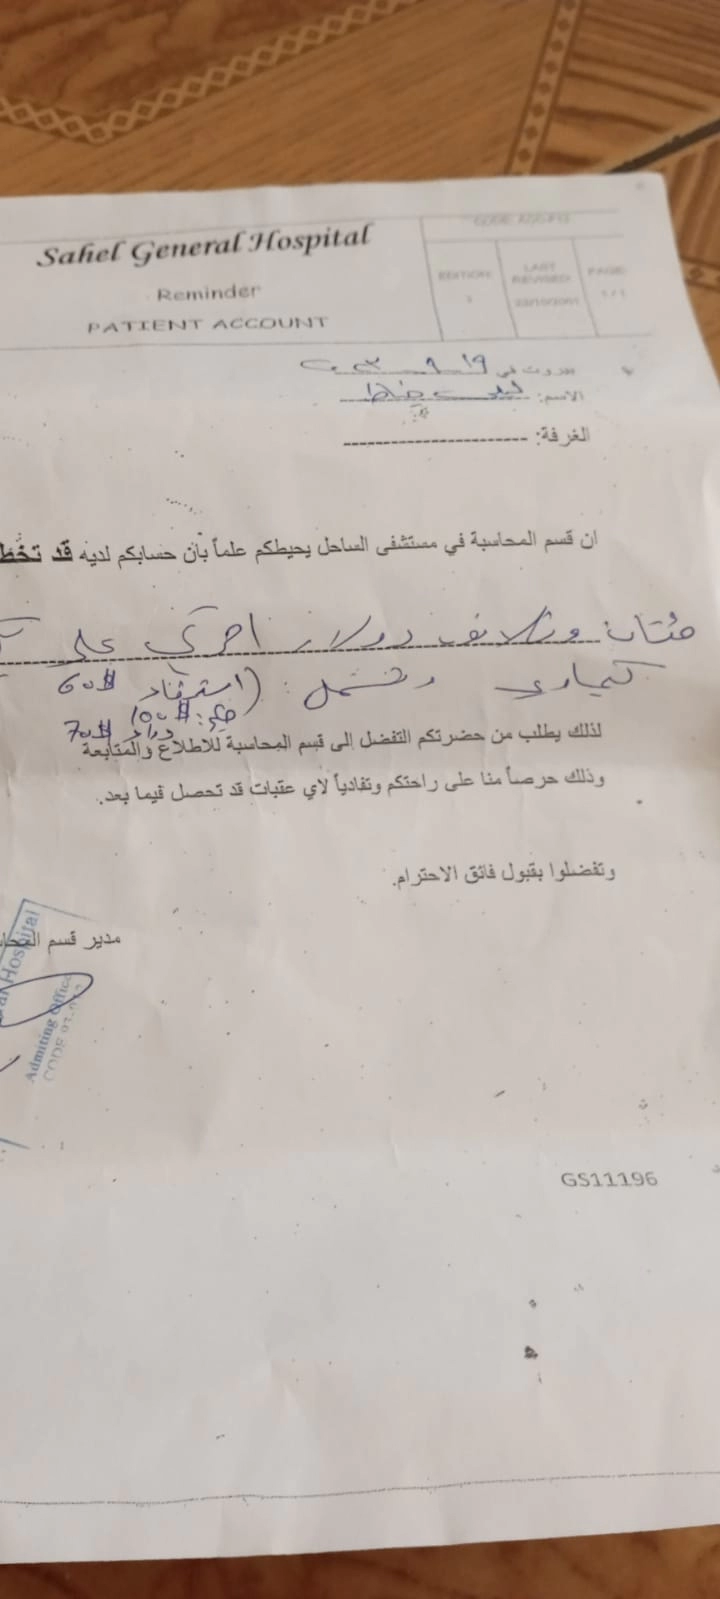 Sahel General Hospital
Reminder
PATIENT ACCOUNT
CODE: ACC-F13
EDITION:
LAST REVISED:
22/10/2001
PAGE:
1 / 1
بيروت في ١٩ ٩
الاسم:
الغرفة:
ان قسم المحاسبة في مستشفى الساحل يحيطكم علماً بأن حسابكم لديه قد تخط
مئتان وثلاثون دولار اميركي على
كيماوي وتشمل: (استشفاء 60$
100$
دواء 70$
لذلك يطلب من حضرتكم التفضل إلى قسم المحاسبة للاطلاع والمتابعة
وذلك حرصاً منا على راحتكم وتفادياً لاي عقبات قد تحصل فيما بعد.
وتفضلوا بقبول فائق الاحترام.
مدير قسم المحا
Hospital
Admiting Office
CODE
GS11196